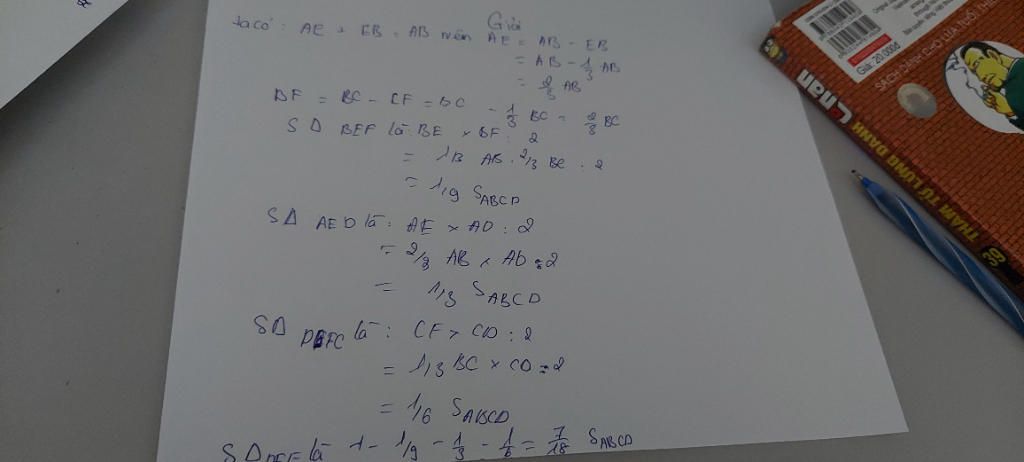 Giải
ta có: AE + EB = AB nên AE = AB - EB
= AB - 1/3 AB
= 2/3 AB
BF = BC - CF = BC - 1/3 BC = 2/3 BC
SΔ BEF là: BE × BF : 2
= 1/3 AB . 2/3 BC : 2
= 1/9 SABCD
SΔ AED là: AE × AD : 2
= 2/3 AB × AD : 2
= 1/3 SABCD
SΔ DFC là: CF × CD : 2
= 1/3 BC × CD : 2
= 1/6 SABCD
SΔ DEF là 1 - 1/9 - 1/3 - 1/6 = 7/18 SABCD
Giá: 20.000đ
Conan
THÁM TỬ LỪNG DANH